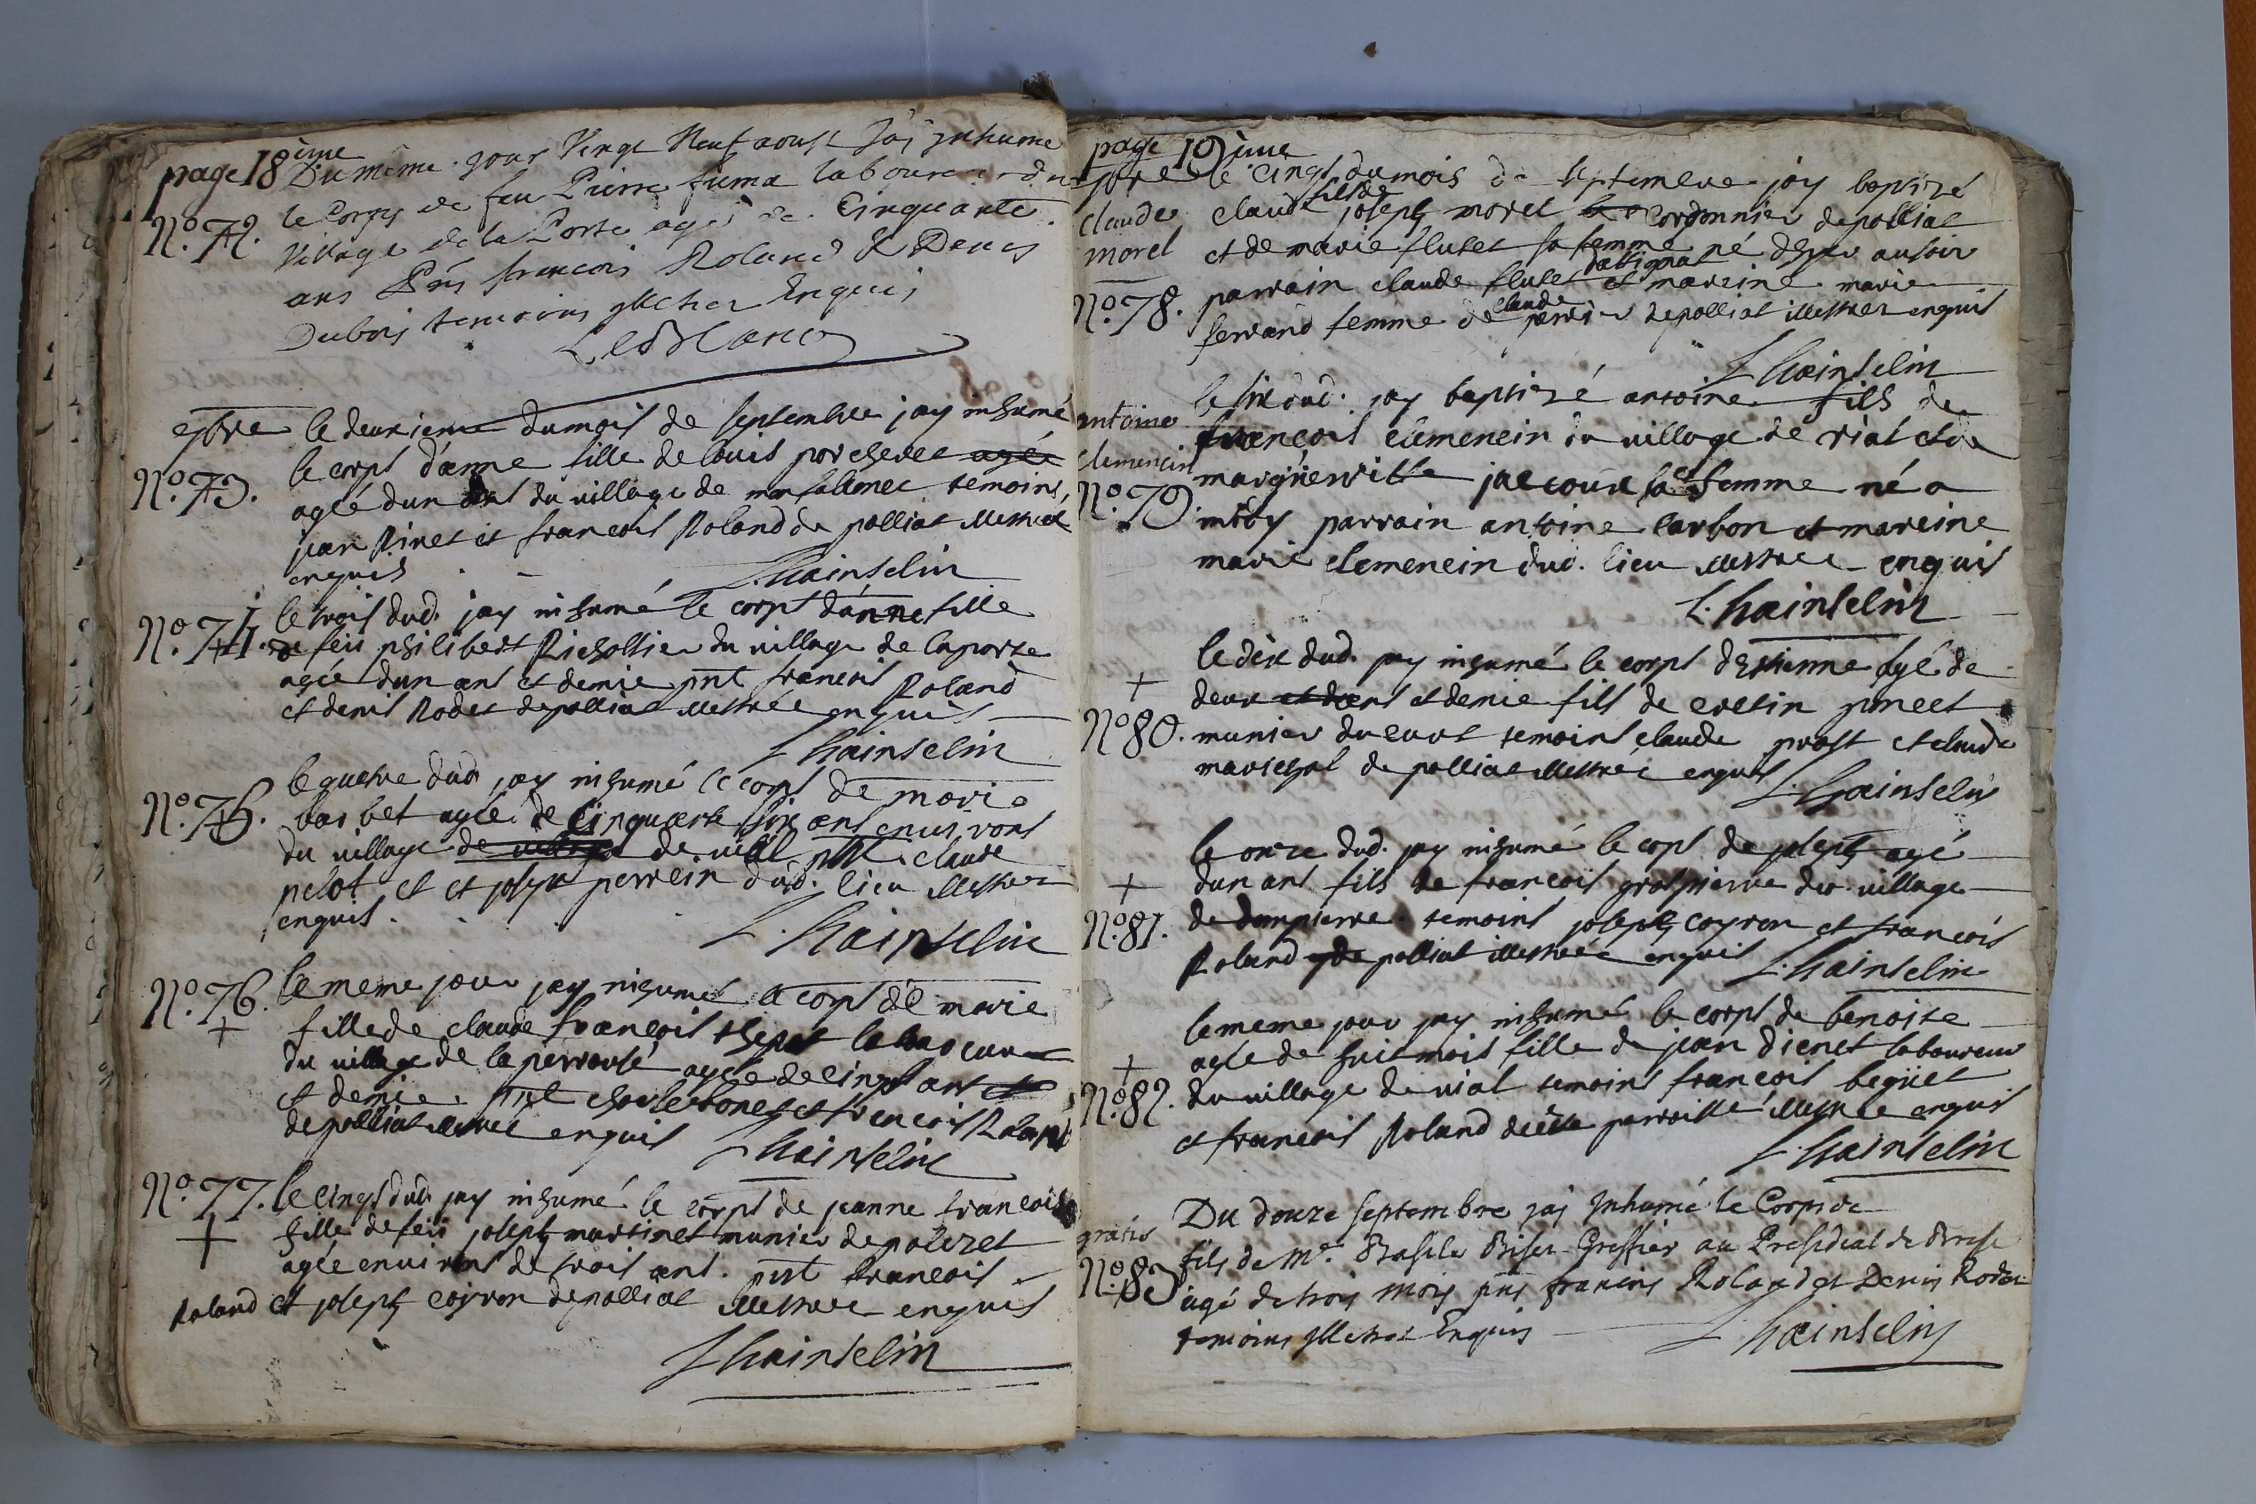 page 18 ème
Du même jour Vingt Neuf aoust J'ai Inhumé
No. 72. le Corps de feu Pierre fuma laboureur du
Village de la Porte agé de Cinquante
ans Pńs francois Roland & Denis
Dubois temoins Illetres Enquis
LeBlanc
le deuxieme du mois de septembre jay inhumé
No. 73. le corps d'anne fille de louis porcheret agée
agée dun ans du village de temoins,
jean Rinet et francois Roland de polliat illettré
enquis
L. hainselin
No. 74. le trois dud. jay inhumé le corps d'anne fille
de feü philibert Richollier du village de laporte
agée dun ans et demie pnt francois Roland
et denis Rodet de polliat illettrée enquis
L hainselin
No. 75. le quatre dud. jay inhumé le corps de marie
barbet agée de Cinquante six ans environs
du village de village de viál pnt. claude
pelot et et joseph perrein dud. lieu illettrez
enquis.
L. hainselin
No. 76. le meme jour jay inhumé le corps de marie
+ fille de claude francois laboureur
du village de la perrouse agée de cinqs ans et
et demie. pnt charle bonet et francois Roland
de polliat illettrée enquis L hainselin
No. 77. le cinqs dud. jay inhumé le corps de jeanne francoise
+ fille de feü joseph martinet munier de polezet
agée environs de trois ans. pnt francois
Roland et joseph coyron de polliat illettrée enquis
L hainselin
page 19 ème
le cinqs du mois de septembre jay baptizé
claude claude fils de joseph morel cordonnier de polliat
morel et de marie flutet sa femme né dhyer ausoir
No. 78. parrain claude flutet dattignat et mareine marie
ferrand femme de claude perrier de polliat illettrez enquis
L hainselin
antoine le six dud. jay baptizé antoine fils de
francois clemencin du village de viál et de
clemencin
No. 79. margüerritte jacoux sa femme né a
midy parrain antoine carbon et mareine
marie clemencin dud. lieu illettrée enquis
L. hainselin
le dix dud. jay inhumé le corps dEstienne agé de
+ deux ans et demie fils de poncet
No 80. munier temoins claude prost et claude
marechal de polliat illettrée enquis
L. hainselin
le onze dud. jay inhumé le corps de joseph agé
+ dun ans fils de francois grospierre du village
No. 81. de dompierre. temoins joseph coyron et francois
Roland de polliat illettrée enquis L. hainselin
le meme jour jay inhumé le corps de benoite
+ agée de huit mois fille de jean dienet laboureur
No. 82. du village de viál temoins francois begüet
et francois Roland de cette parroisse illettrée enquis
L. hainselin
Du douze septembre jai Inhumé le Corps de
gratis fils de Me. Basile Greffier au Presidial de
No. 83 agé de trois mois pńs francois Roland et Denis Rodet
temoins Illetrez Enquis L hainselin